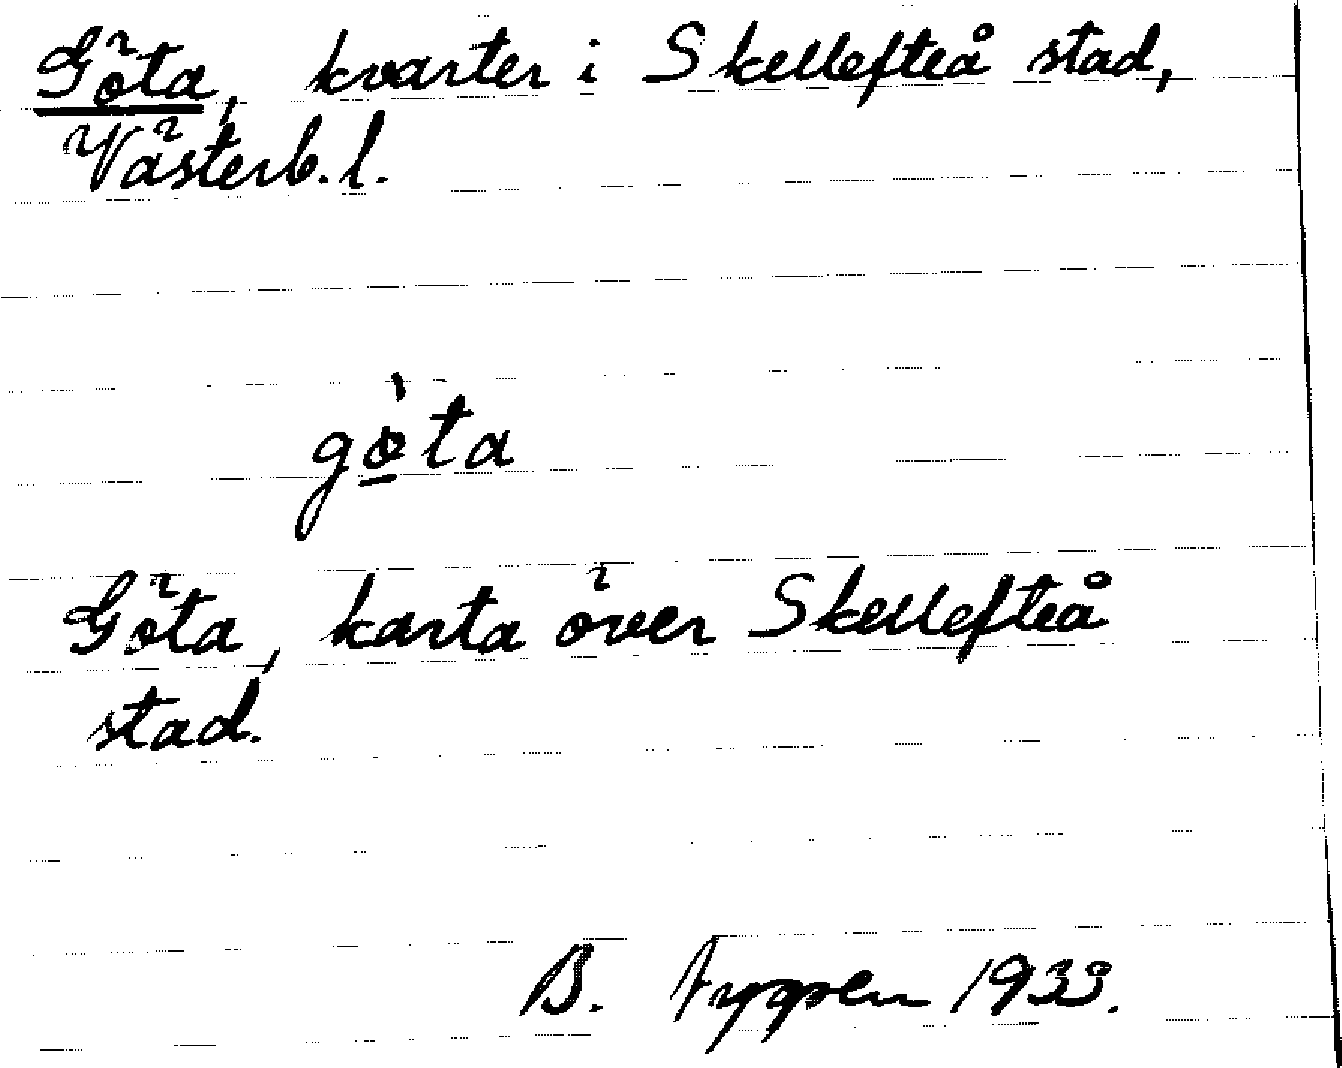 Göta, kvarter i Skellefteå stad,
Västerb. l.
gö̀ta
Göta, karta över Skellefteå
stad.
B. 1933.